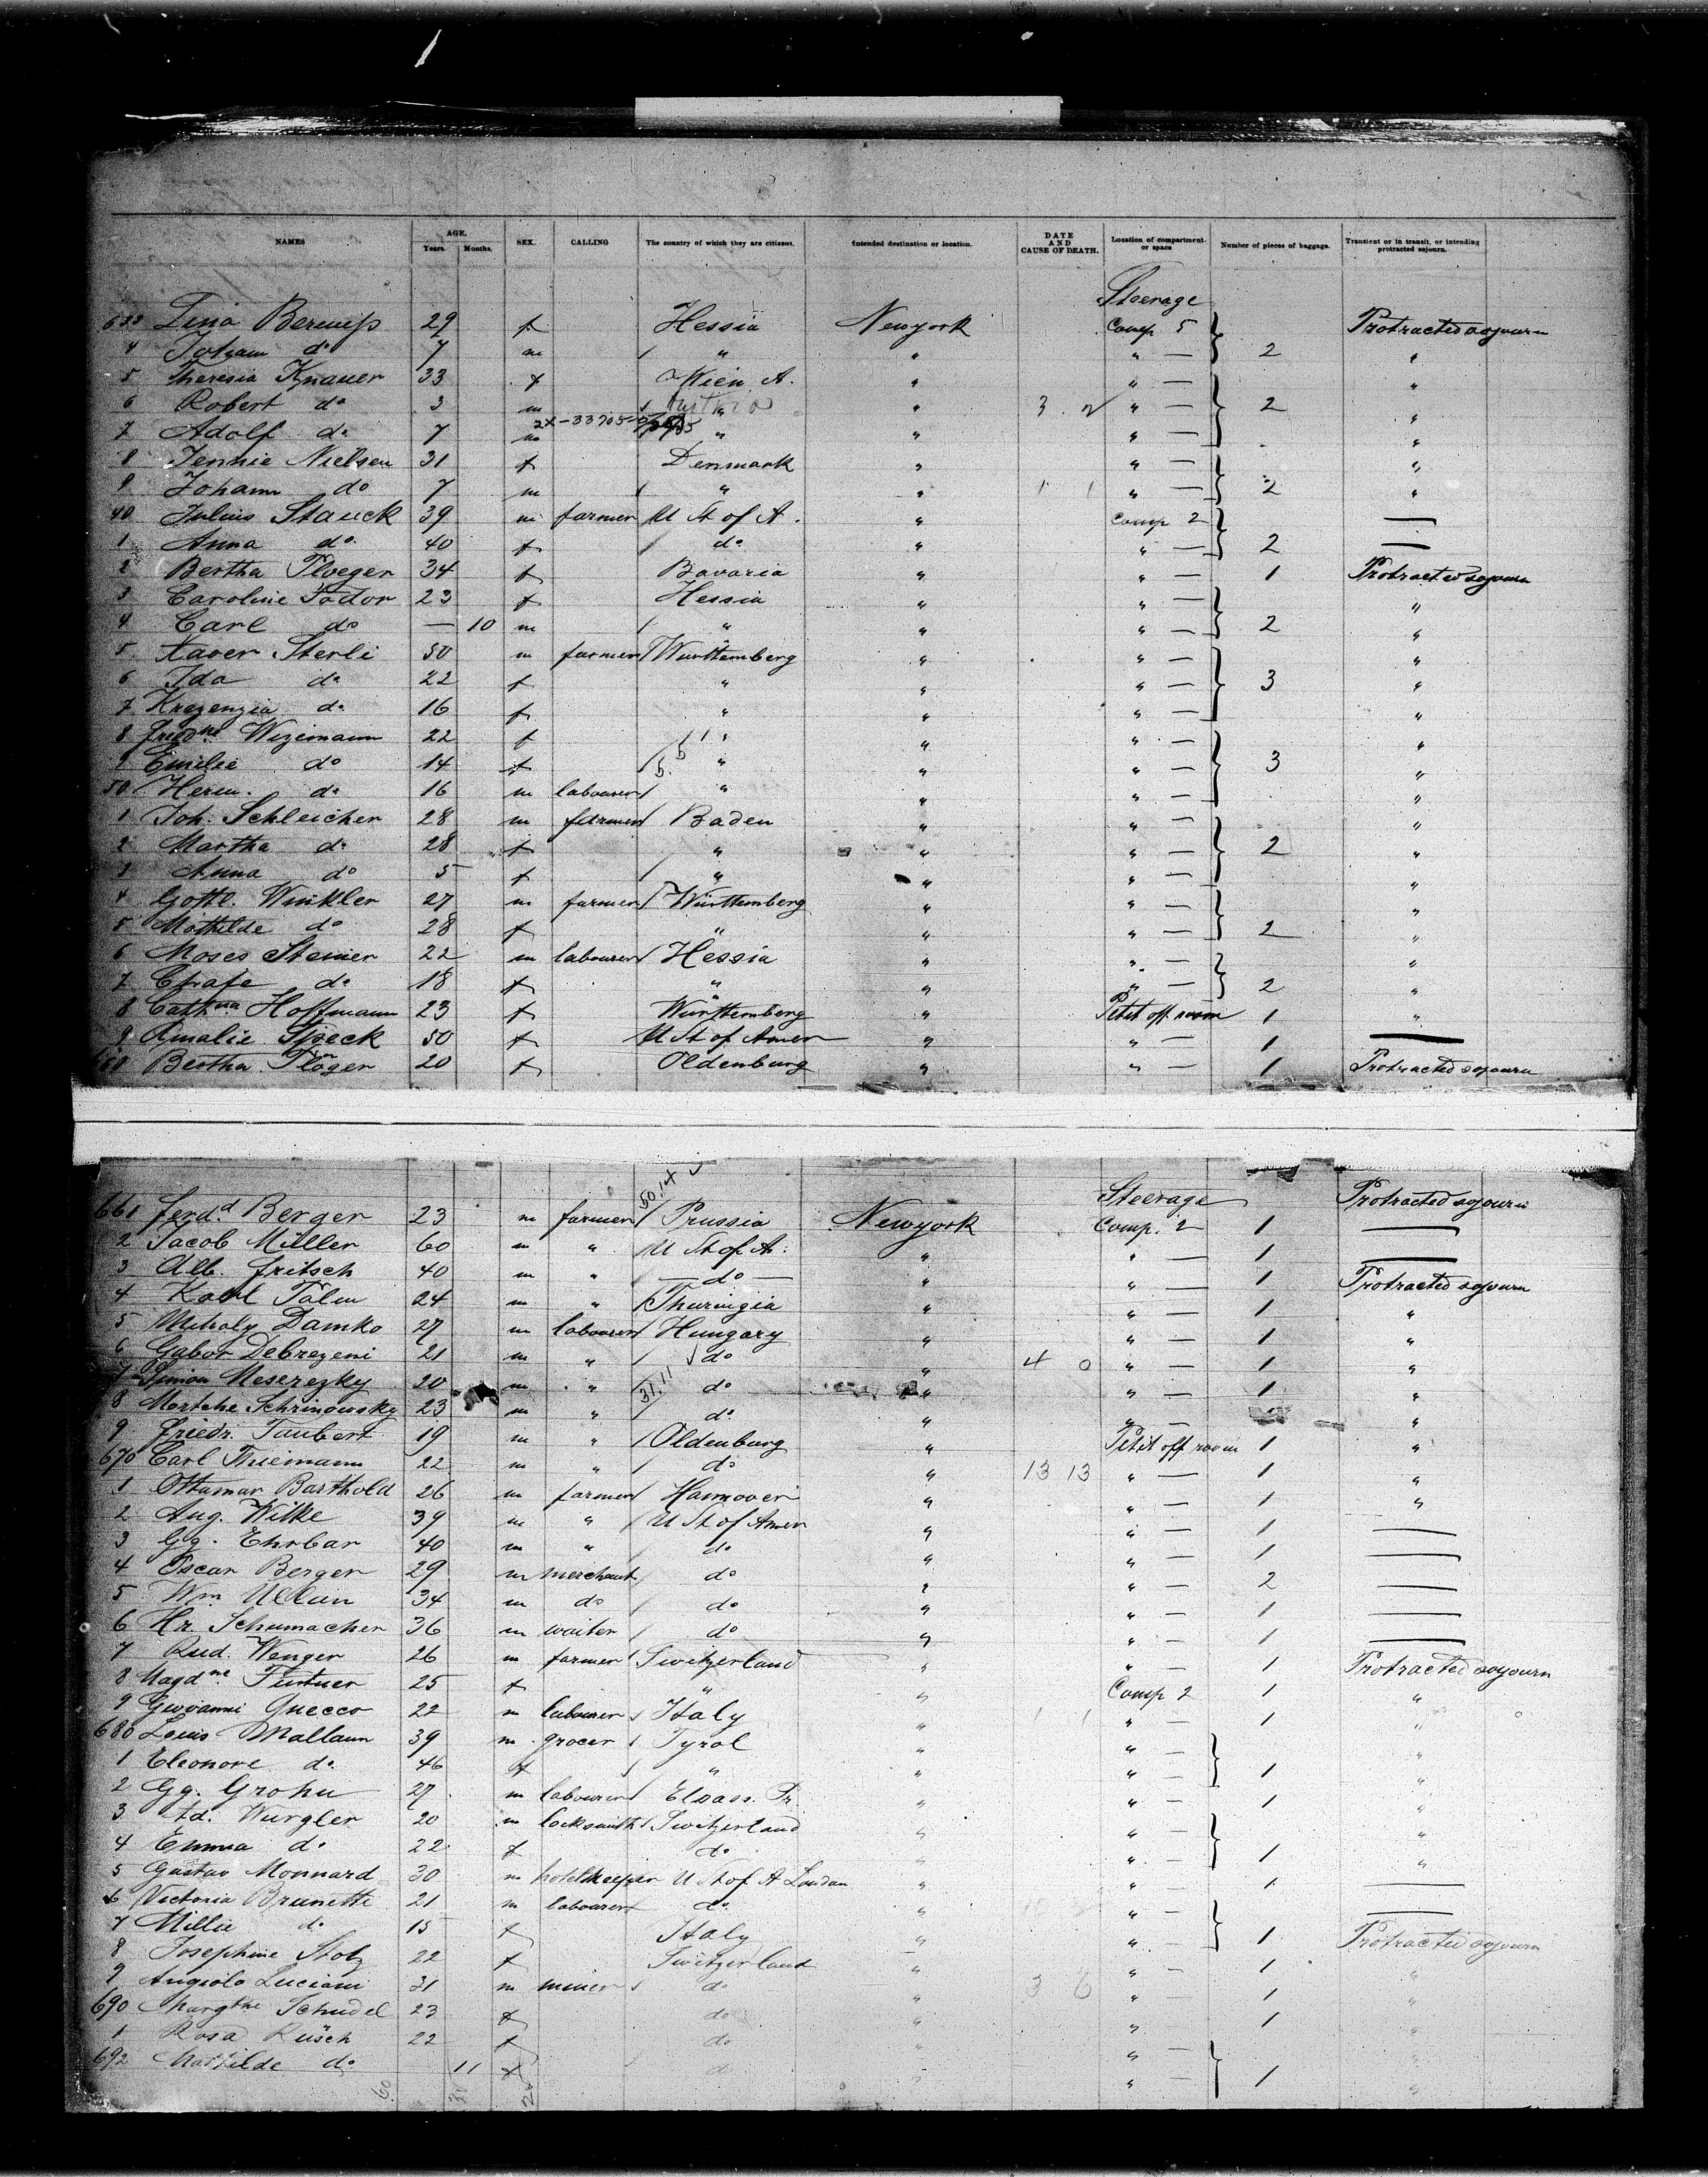 NAMES AGE. Years. Months. SEX. CALLING The country of which they are citizens. Intended destination or location. DATE AND CAUSE OF DEATH. Location of compartment or space Number of pieces of baggage. Transient or in transit, or intending protracted sojourn.
Steerage
633 29 f Hessia Newyork Comp 5 Protracted sojourn
4 Johann do 7 m " " " — 2 "
5 Theresia Knauer 33 f Wien A. " " — "
6 Robert do 3 m " " 3 " — 2 "
7 Adolf do 7 m 2X-33705- " " " — "
8 Jennie Nielsen 31 f Denmark " " — "
9 Johann do 7 m " " 1 1 " — 2 "
40 Julius Stauck 39 m farmer U St of A. " Comp 2 —
1 Anna do 40 f do " " — 2 —
2 Bertha Ploeger 34 f Bavaria " " — 1 Protracted sojourn
3 Caroline Fodor 23 f Hessia " " — "
4 Carl do — 10 m " " " — 2 "
5 Xaver Sterli 50 m farmer Wurttemberg " " — "
6 Ida do 22 f " " " — 3 "
7 Krezenzia do 16 f " " " — "
8 Friedne Wizimann 22 f " " " — "
9 Emilie do 14 f " " " — 3 "
50 Herm. do 16 m labourer " " " — "
1 Joh. Schleicher 28 m farmer Baden " " — "
2 Martha do 28 f " " " — 2 "
3 Anna do 5 f " " " — "
4 Gottl. Winkler 27 m farmer Württemberg " " — "
5 Mathilde do 28 f " " " — 2 "
6 Moses Steiner 22 m labourer Hessia " " — "
7 do 18 f " " " — 2 "
8 Cathna Hoffmann 23 f Württemberg " Petit off room 1 "
9 Amalie Speck 50 f U St of Amer " " — 1 —
660 Bertha Plöger 20 f Oldenburg " " — 1 Protracted sojourn
50.14
Steerage
661 Ferdd Berger 23 m farmer Prussia Newyork Comp. 2 1 Protracted sojourn
2 Jacob Miller 60 m " U St of A. " " — 1 —
3 Alb. Fritsch 40 m " do " " — 1 —
4 Karl Palm 24 m " Thuringia " " — 1 Protracted sojourn
5 Mihaly Damko 27 m labourer Hungary " " — 1 "
6 Gabor Debrezeni 21 m " do " 4 0 " — 1 "
7 Simon Meserezky 20 m " 31.11 do " " — 1 "
8 Mortche Schrinowsky 23 m " do " " — "
9 Friedr. Taubert 19 m " Oldenburg " Petit off room 1 "
670 Carl Thiemann 22 m " do " 13 13 " — 1 "
1 Ottomar Barthold 26 m farmer Hannover " " — 1 "
2 Aug. Wilke 39 m " U St of Amer " " — 1 —
3 Gg. Ehrbar 40 m " do " " — 1 —
4 Oscar Berger 29 m merchant do " " — 2 —
5 Wm Ullun 34 m do do " " — 1 —
6 Hr. Schumacher 36 m waiter do " " — 1 —
7 Rud. Wenger 26 m farmer Switzerland " " — 1 Protracted sojourn
8 Magdne 25 f " " Comp 2 1 "
9 Giovanni Quecco 22 m labourer Italy " 1 1 " — 1 "
680 Louis Mallaun 39 m grocer Tyrol " " — "
1 Eleonore do 46 f " " " — 1 "
2 Gg. Grohn 27 m labourer Elsass. Pr. " " — 1 "
3 Ad. Wurgler 20 m locksmith Switzerland " " — "
4 Emma do 22 f do " " — 1 "
5 Gustav Monnard 30 m hotelkeeper U St of A London " " — 1 —
6 Victoria Brunetti 21 m labourer do " " — —
7 Millie do 15 f Italy " " — 1 Protracted sojourn
8 Josephine Stolz 22 f Switzerland " " — 1 "
9 Angiolo Luciani 31 m miner do " 3 6 " — 1 "
690 Margthe Schudel 23 f do " " — 1 "
1 Rosa Rüsch 22 f do " " — "
692 Mathilde do 11 f do " " — 1 "
60